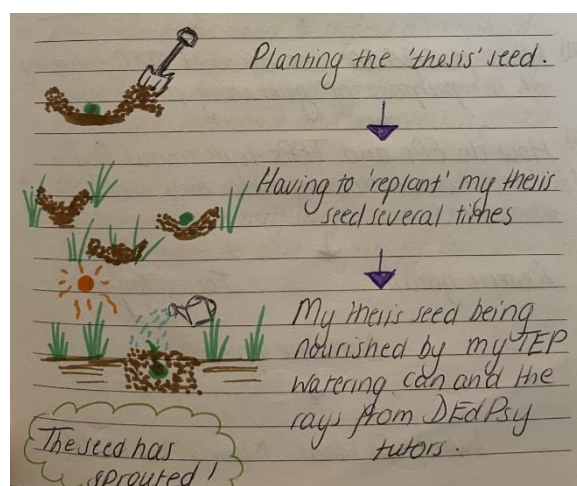 Planting the 'thesis' seed.
Having to 'replant' my thesis
seed several times
My thesis seed being
nourished by my TEP
watering can and the
rays from DEdPsy
tutors.
The seed has
sprouted!